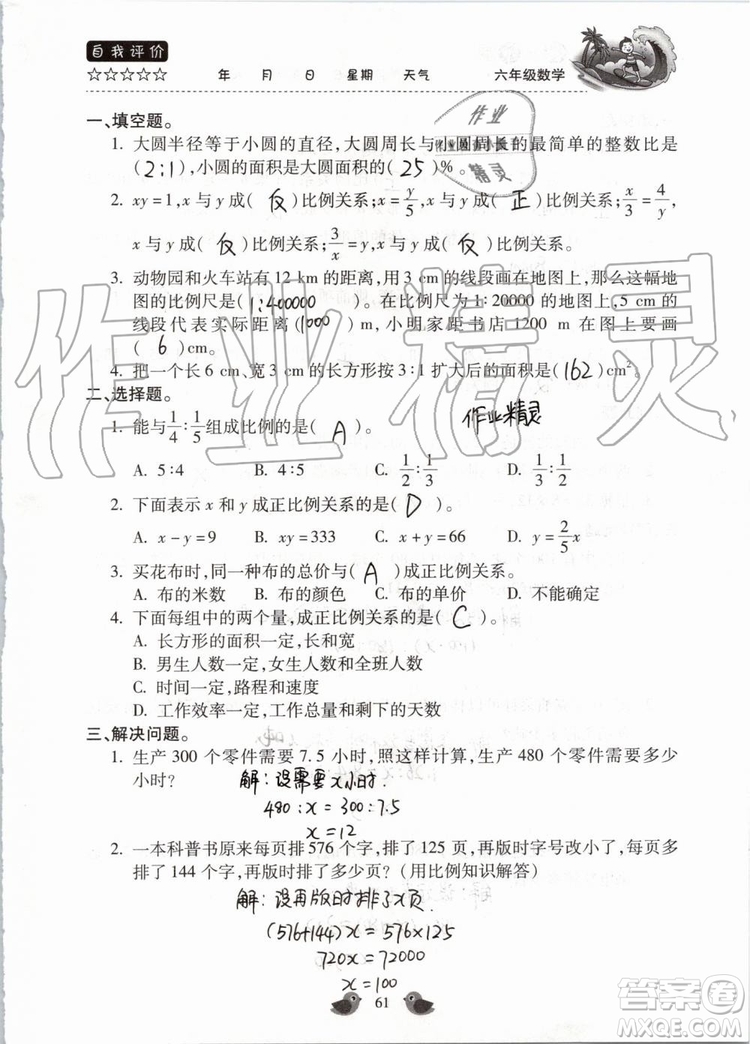 自我评价
☆☆☆☆☆ 年 月 日 星期 天气 六年级数学
一、填空题。
1. 大圆半径等于小圆的直径，大圆周长与小圆周长的最简单的整数比是
(2:1)，小圆的面积是大圆面积的( 25 )%。
2. xy=1，x 与 y 成( 反 )比例关系；x=y/5，x 与 y 成( 正 )比例关系；x/3=4/y，
x 与 y 成( 反 )比例关系；3/x=y，x 与 y 成( 反 )比例关系。
3. 动物园和火车站有 12 km 的距离，用 3 cm 的线段画在地图上，那么这幅地
图的比例尺是(1:400000)。在比例尺为1:20000 的地图上，5 cm 的
线段代表实际距离(1000)m，小明家距书店 1200 m 在图上要画
( 6 )cm。
4. 把一个长6 cm、宽3 cm 的长方形按 3:1 扩大后的面积是(162)cm²。
二、选择题。
1. 能与1/4:1/5组成比例的是( A )。
A. 5:4 B. 4:5 C. 1/2:1/3 D. 1/3:1/2
2. 下面表示 x 和 y 成正比例关系的是( D )。
A. x-y=9 B. xy=333 C. x+y=66 D. y=2/5x
3. 买花布时，同一种布的总价与( A )成正比例关系。
A. 布的米数 B. 布的颜色 C. 布的单价 D. 不能确定
4. 下面每组中的两个量，成正比例关系的是( C )。
A. 长方形的面积一定，长和宽
B. 男生人数一定，女生人数和全班人数
C. 时间一定，路程和速度
D. 工作效率一定，工作总量和剩下的天数
三、解决问题。
1. 生产 300 个零件需要 7.5 小时，照这样计算，生产 480 个零件需要多少
小时？
解：设需要x小时
480:x=300:7.5
x=12
2. 一本科普书原来每页排576 个字，排了 125 页，再版时字号改小了，每页多
排了 144 个字，再版时排了多少页？(用比例知识解答)
解：设再版时排了x页.
(576+144)x=576×125
720x=72000
x=100
61
作业
精灵
作业精灵
作业精灵
答案圈
MXQE.COM